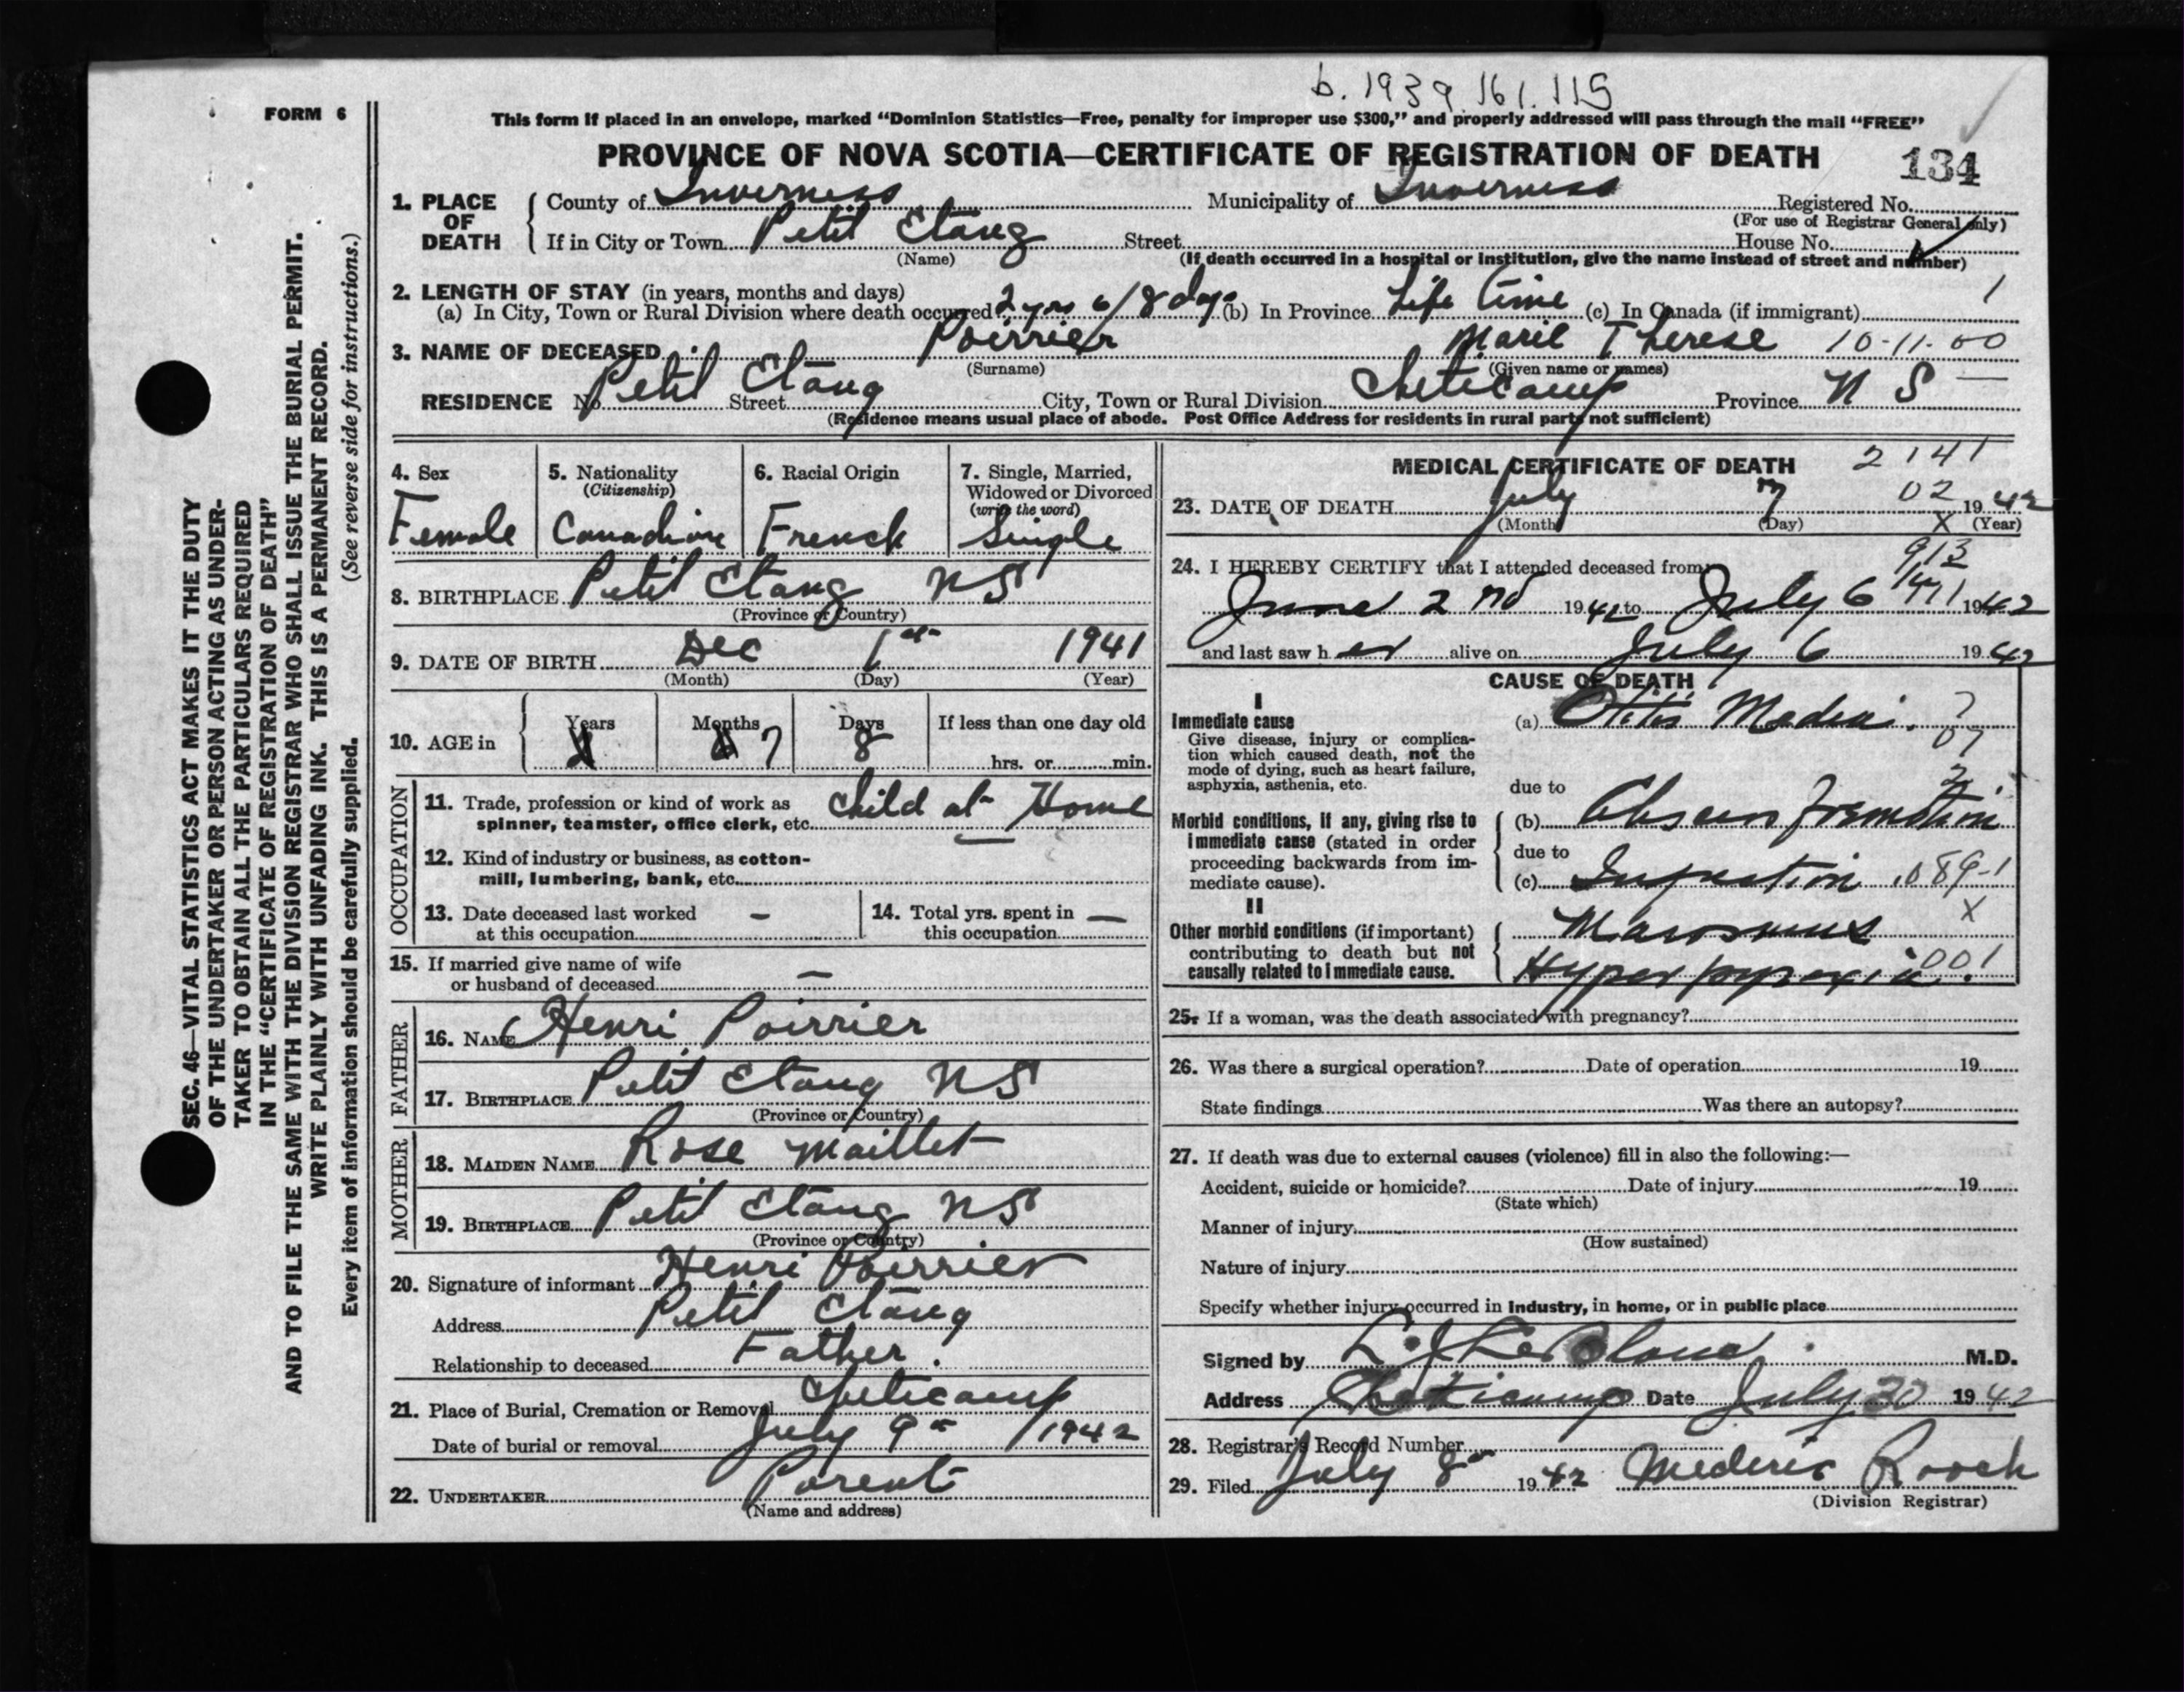 b. 1939. 161. 115
FORM 6
This form if placed in an envelope, marked "Dominion Statistics—Free, penalty for improper use $300," and properly addressed will pass through the mail "FREE"
PROVINCE OF NOVA SCOTIA—CERTIFICATE OF REGISTRATION OF DEATH 134
1. PLACE OF DEATH County of Inverness Municipality of Inverness Registered No.
(For use of Registrar General only)
If in City or Town Petit Etang Street House No.
(Name) (If death occurred in a hospital or institution, give the name instead of street and number)
2. LENGTH OF STAY (in years, months and days)
(a) In City, Town or Rural Division where death occurred 2 yrs 6/8 days (b) In Province Life time (c) In Canada (if immigrant) 1
3. NAME OF DECEASED Poirrier Marie Therese 10-11-00
(Surname) (Given name or names)
RESIDENCE No. Petit Etang Street City, Town or Rural Division Cheticamp Province N S
(Residence means usual place of abode. Post Office Address for residents in rural parts not sufficient)
4. Sex 5. Nationality (Citizenship) 6. Racial Origin 7. Single, Married, Widowed or Divorced (write the word)
Female Canadian French Single
8. BIRTHPLACE Petit Etang NS
(Province or Country)
9. DATE OF BIRTH Dec 1st 1941
(Month) (Day) (Year)
10. AGE in Years Months Days If less than one day old
7 8 hrs. or min.
OCCUPATION
11. Trade, profession or kind of work as spinner, teamster, office clerk, etc. Child at Home
12. Kind of industry or business, as cotton-mill, lumbering, bank, etc.
13. Date deceased last worked at this occupation —
14. Total yrs. spent in this occupation —
15. If married give name of wife or husband of deceased —
FATHER
16. NAME Henri Poirrier
17. BIRTHPLACE Petit Etang NS
(Province or Country)
MOTHER
18. MAIDEN NAME Rose Maillet
19. BIRTHPLACE Petit Etang NS
(Province or Country)
20. Signature of informant Henri Poirrier
Address Petit Etang
Relationship to deceased Father
21. Place of Burial, Cremation or Removal Cheticamp
Date of burial or removal July 9th 1942
22. UNDERTAKER Parent
(Name and address)
MEDICAL CERTIFICATE OF DEATH 2141
02
23. DATE OF DEATH July 7 1942
(Month) (Day) X (Year)
913
24. I HEREBY CERTIFY that I attended deceased from
June 2nd 1942 to July 6 1942
and last saw her alive on July 6 1942
CAUSE OF DEATH
I
Immediate cause (a) Otitis Media. ?
Give disease, injury or complication which caused death, not the mode of dying, such as heart failure, asphyxia, asthenia, etc.
07
due to
Morbid conditions, if any, giving rise to immediate cause (stated in order proceeding backwards from immediate cause).
(b) Abscess formation
due to
(c) Infection 089-1
X
II
Other morbid conditions (if important) contributing to death but not causally related to immediate cause.
Marasmus
Hyperpyrexia. 001
25. If a woman, was the death associated with pregnancy?
26. Was there a surgical operation? Date of operation 19
State findings Was there an autopsy?
27. If death was due to external causes (violence) fill in also the following:—
Accident, suicide or homicide? Date of injury 19
(State which)
Manner of injury
(How sustained)
Nature of injury
Specify whether injury occurred in industry, in home, or in public place
Signed by M.D.
Address Cheticamp Date July 30 1942
28. Registrar's Record Number
29. Filed July 8th 1942 Mederic Roach
(Division Registrar)
SEC. 46—VITAL STATISTICS ACT MAKES IT THE DUTY
OF THE UNDERTAKER OR PERSON ACTING AS UNDER-
TAKER TO OBTAIN ALL THE PARTICULARS REQUIRED
IN THE "CERTIFICATE OF REGISTRATION OF DEATH"
AND TO FILE THE SAME WITH THE DIVISION REGISTRAR WHO SHALL ISSUE THE BURIAL PERMIT.
WRITE PLAINLY WITH UNFADING INK. THIS IS A PERMANENT RECORD.
Every item of information should be carefully supplied. (See reverse side for instructions.)